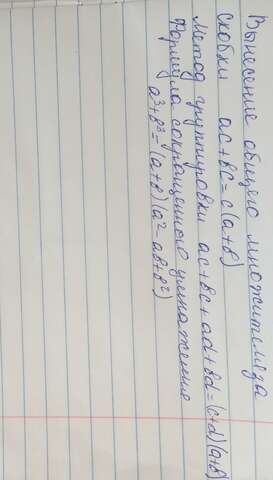 Вынесение общего множителя за
скобки ac+bc=c(a+b)
Метод группировки ac+bc+ad+bd=(c+d)(a+b)
Формула сокращенного умножения
a³+b³=(a+b)(a²-ab+b²)